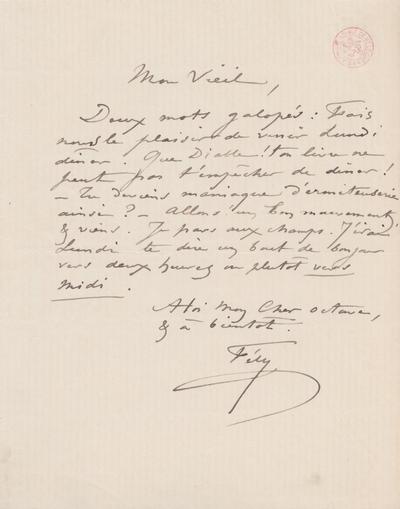 Mon Vieil,
Deux mots galopés : Fais
nous le plaisir de venir Lundi
dîner. Que Diable ! ton livre ne
peut pas t'empêcher de dîner !
– Tu deviens maniaque d'ermiteuserie
ainsi ? – Allons ! un bon mouvement,
& viens. Je pars aux champs. J'irai
Lundi te dire un bout de bonjour
vers deux heures ou plutôt vers
midi.
A toi mon Cher Octave,
& à bientôt.
Fély